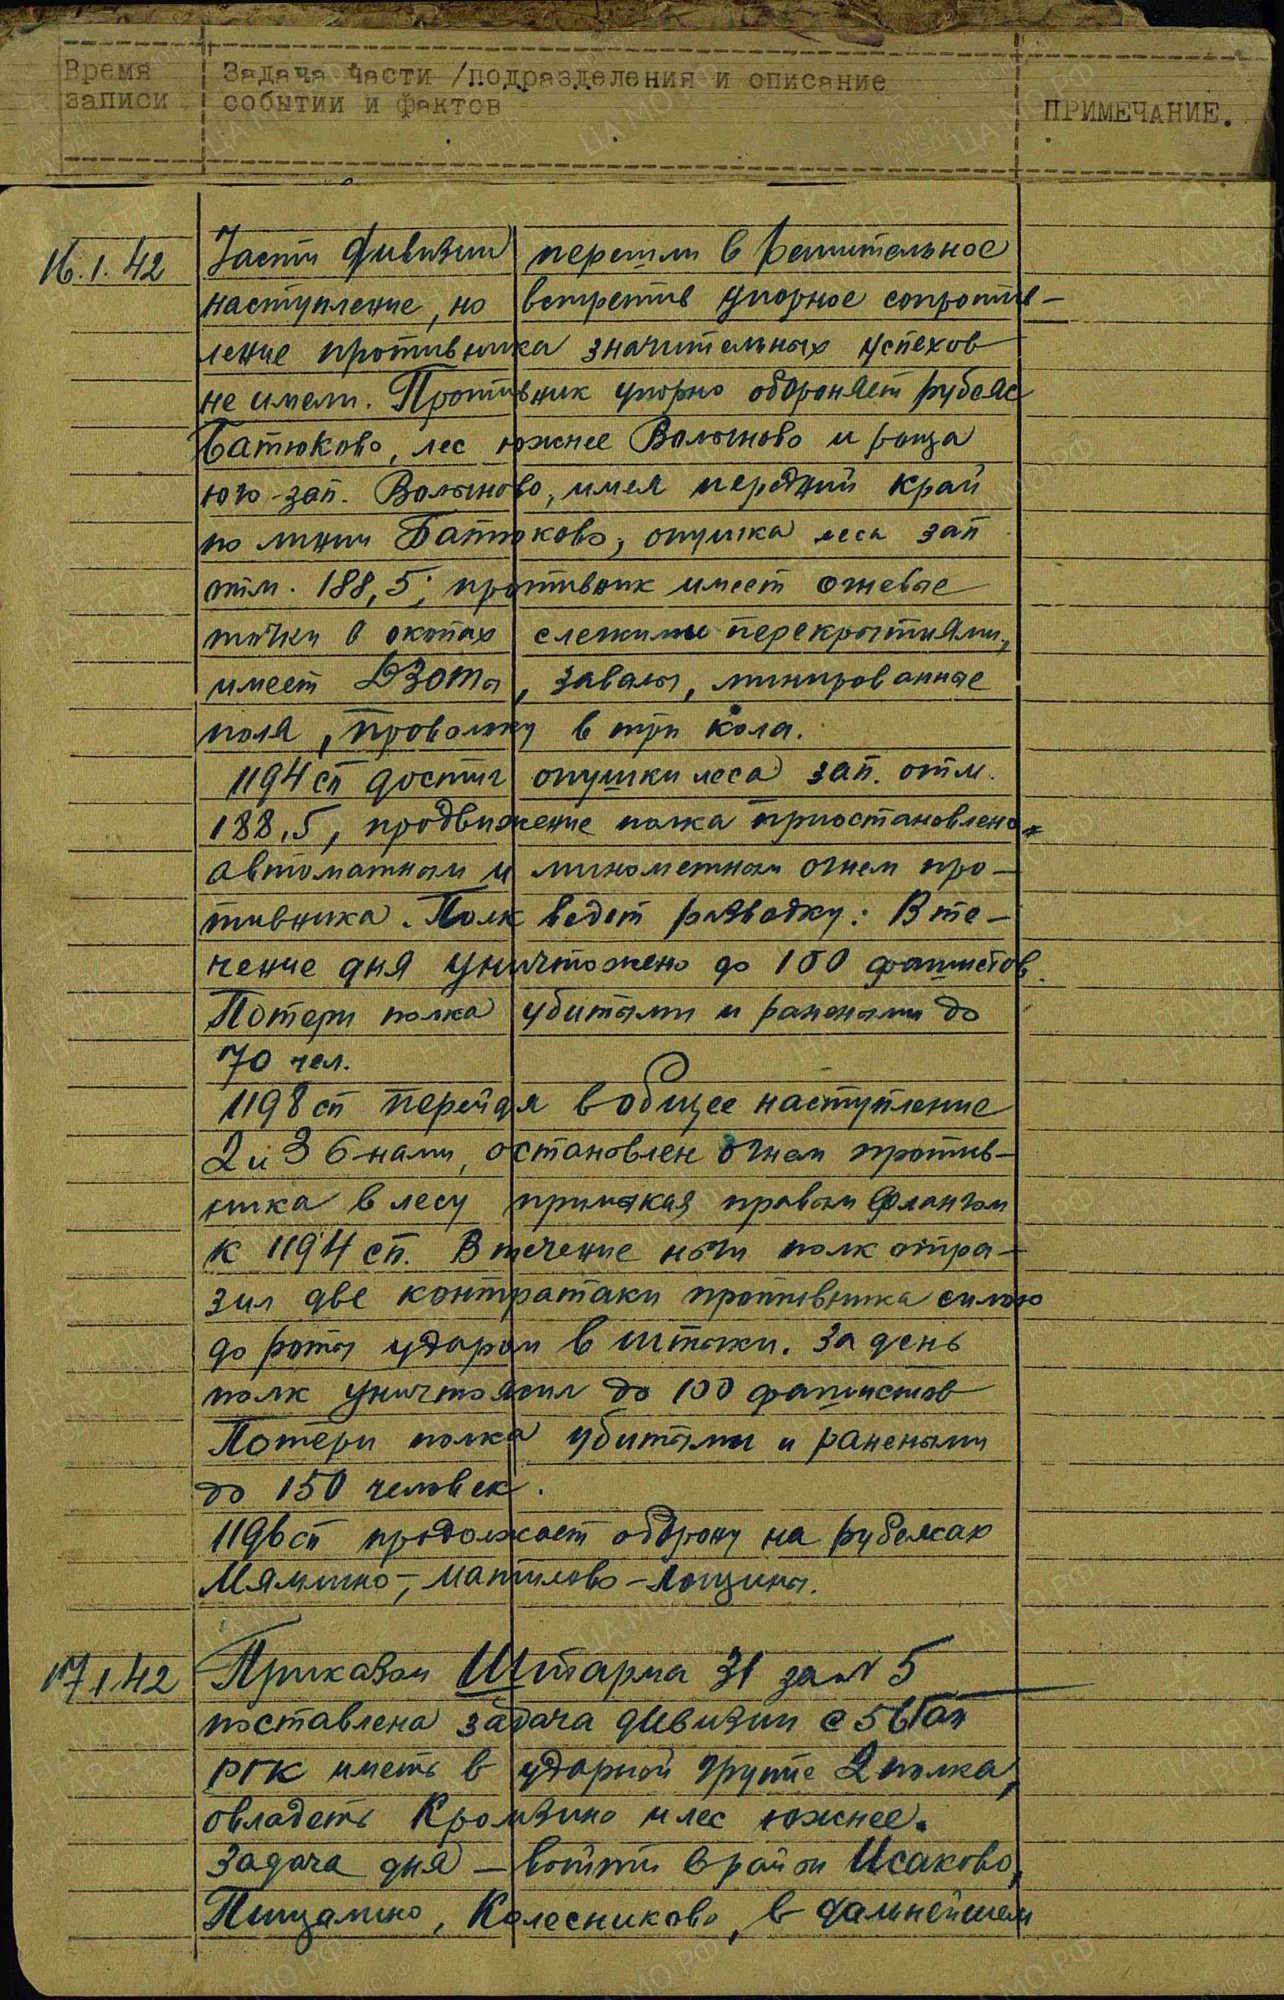 Время записи
Задача части /подразделения и описание событии и фактов
ПРИМЕЧАНИЕ.
16.1.42
Части дивизии перешли в решительное
наступление, но встретив упорное сопротив-
ление противника значительных успехов
не имели. Противник упорно обороняет рубеж
Батюково, лес южнее Волыново и роща
юго-зап. Волыново, имея передний край
по линии Батюково, опушка леса зап
отм. 188,5; противник имеет огневые
точки в окопах с легкими перекрытиями,
имеет ДЗОТы, завалы, минированные
поля, проволоку в три кола.
1194 сп достиг опушки леса зап. отм.
188,5, продвижение полка приостановлено
автоматным и минометным огнем про-
тивника. Полк ведет разведку. В те-
чение дня уничтожено до 100 фашистов.
Потери полка убитыми и ранеными до
70 чел.
1198 сп перейдя в общее наступление
2 и 3 б-нами, остановлен огнем против-
ника в лесу примыкая правым флангом
к 1194 сп. В течение ночи полк отра-
зил две контратаки противника силою
до роты ударом в штыки. За день
полк уничтожил до 100 фашистов
Потери полка убитыми и ранеными
до 150 человек.
1196 сп продолжает оборону на рубежах
Мямлино, Мантлово - Лощины.
17.1.42
Приказом Штарма 31 за № 5
поставлена задача дивизии с 56 гап
РГК иметь в ударной группе 2 полка,
овладеть Кромзино и лес южнее.
Задача дня – выйти в район Исаково,
Пищалино, Колесниково, в дальнейшем